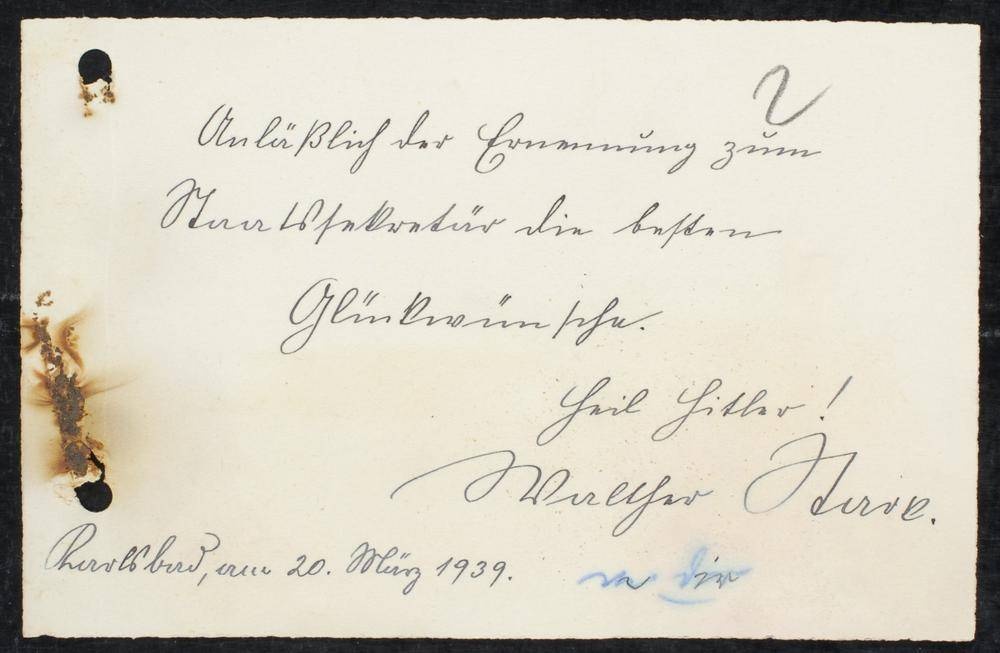 2
Anläßlich der Ernennung zum
Staatssekretär die besten
Glückwünsche.
Heil Hitler!
Walther Stark.
Karlsbad, am 20. März 1939.